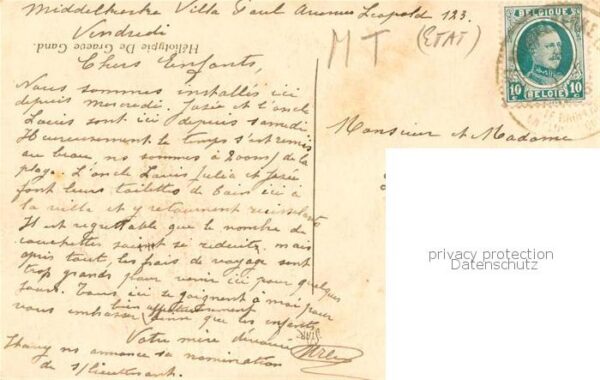 Middelkerke Villa Paul Avenue Leopold 123.
Vendredi
Chers Enfants,
Nous sommes installés ici
depuis mercredi. Josée et l'oncle
Louis sont ici depuis samedi
Heureusement le temps s'est remis
au beau, ns sommes à 200m/ de la
plage. L'oncle Louis Julia et Josée
font leurs toilettes de bain ici à
la villa et y retournent
Il est regrettable que le nombre de
couchettes soient si reduits, mais
après tout, les frais de voyage sont
trop grands pour venir ici pour quelques
jours. Tous ici se joignent à moi pour
vous embrasser bien affectueusement
ainsi que les enfants
Votre mère dévouée
Harry ns annonce sa nomination
de s/lieutenant.
Héliotypie De Graeve Gand.
MT (ETAT)
BELGIQUE
10 10
BELGIE
Monsieur et Madame
STAR
privacy protection
Datenschutz